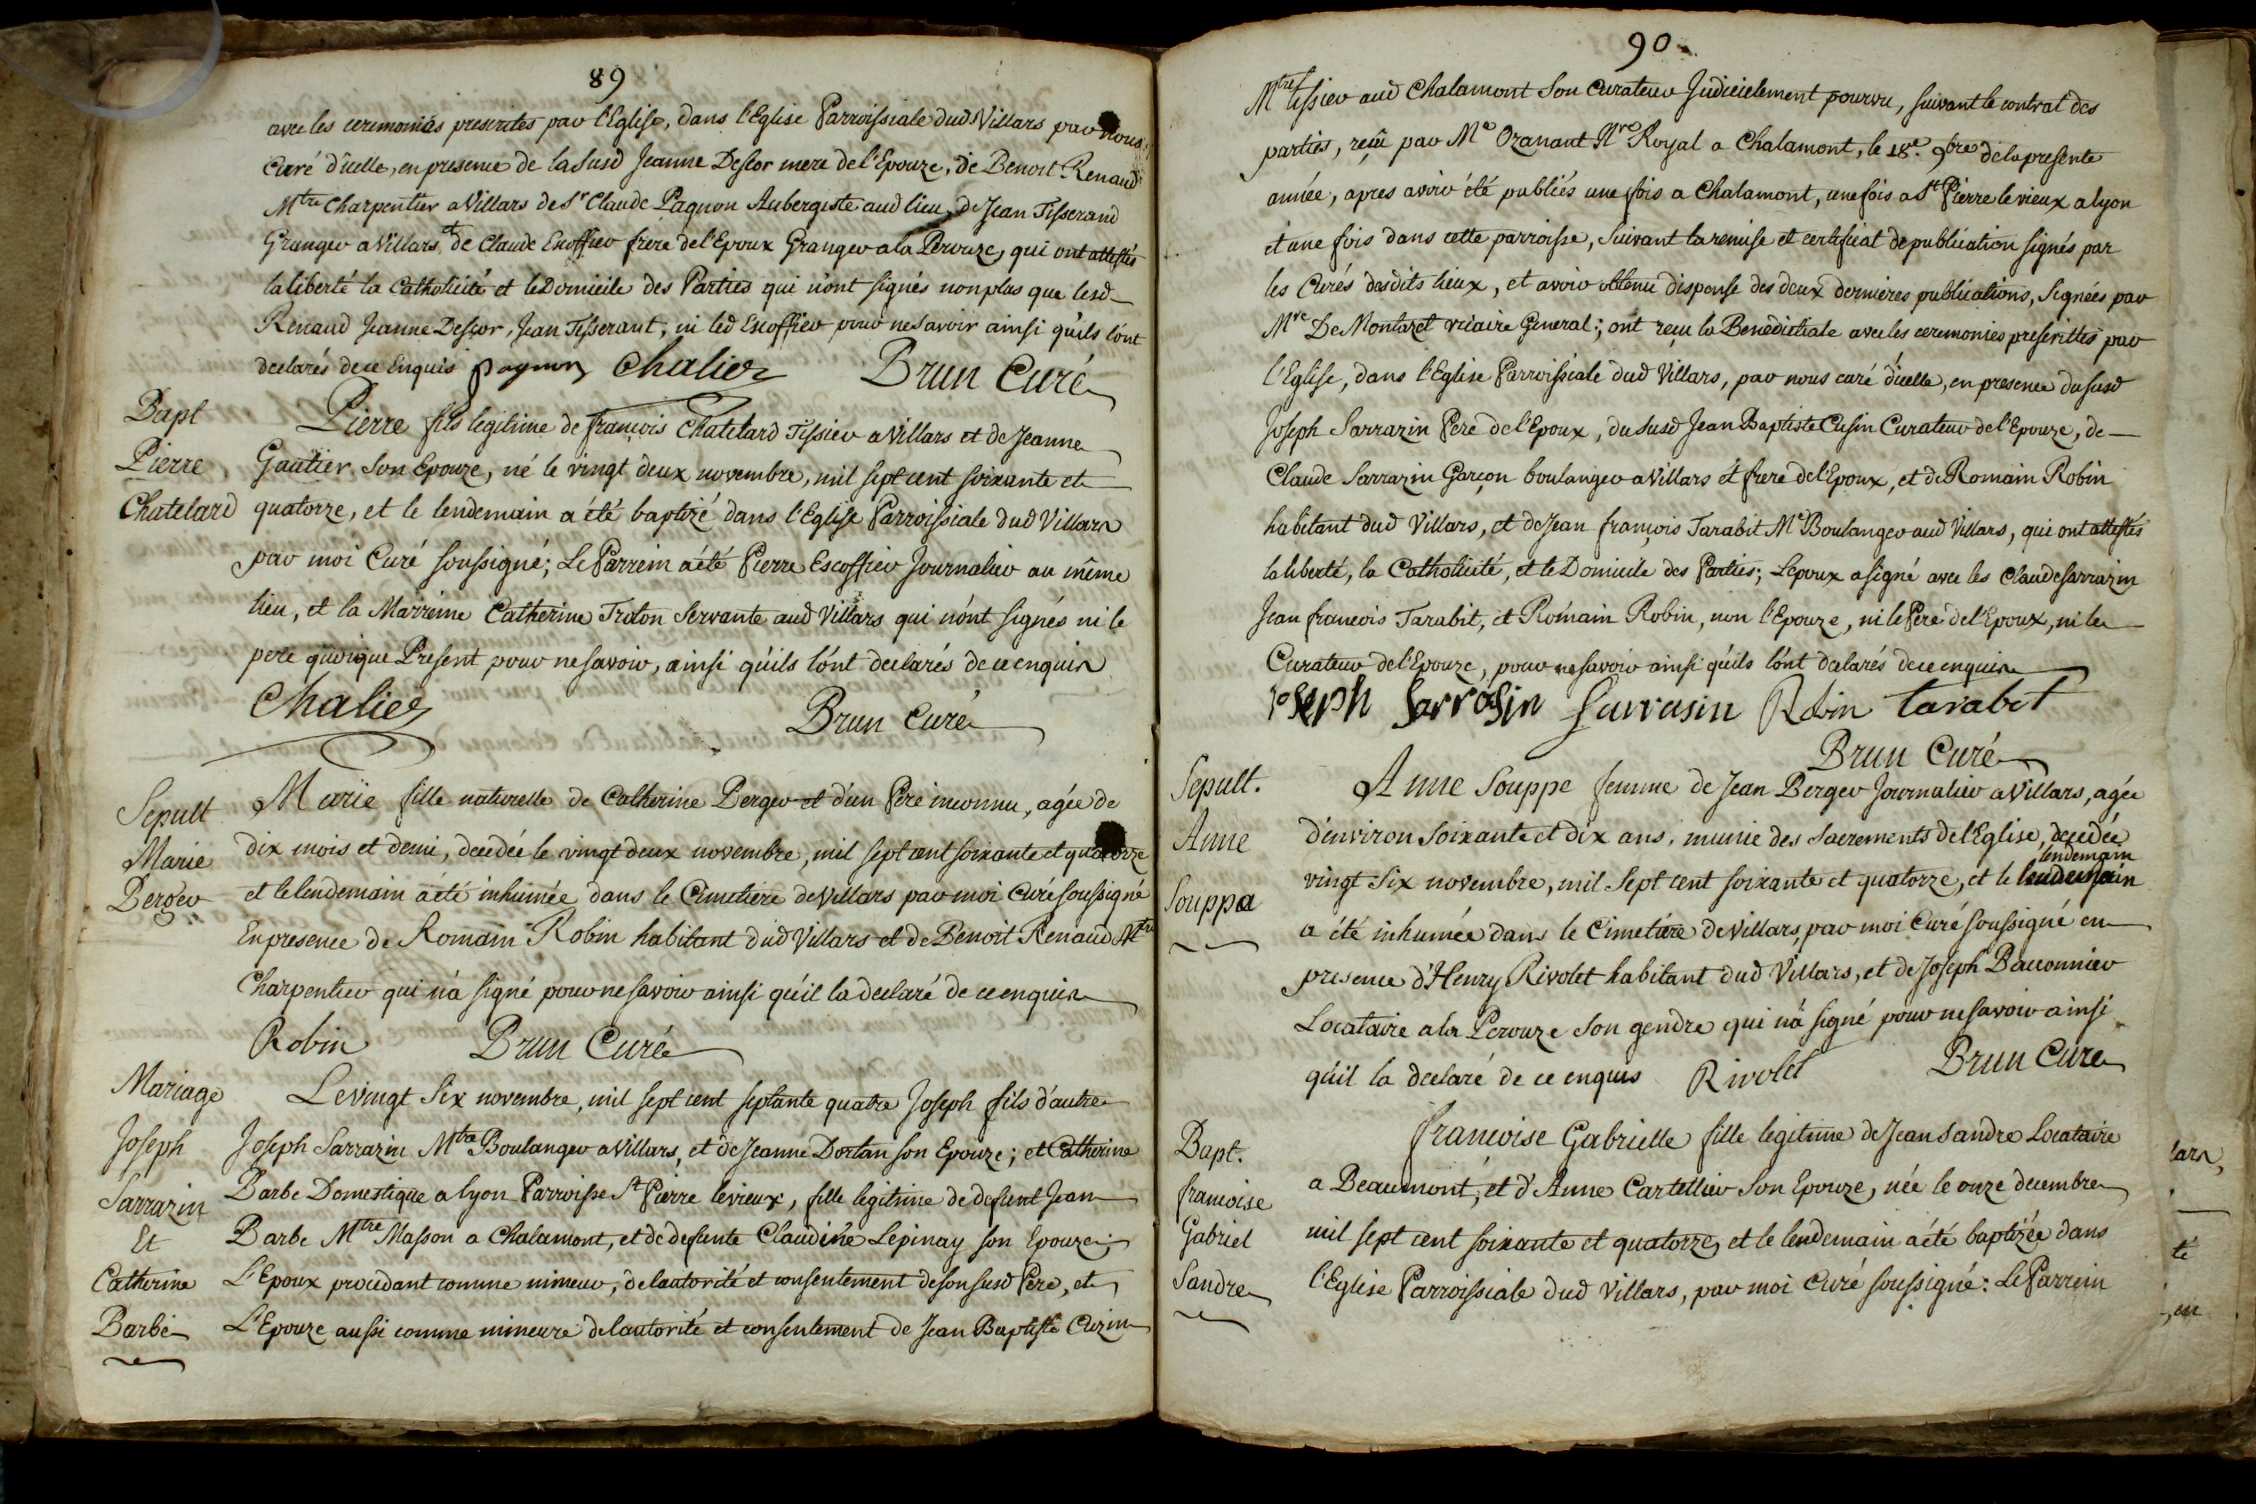 89
avec les ceremonies prescrites par l'Eglise, dans l'Eglise Parroissiale dud Villars par nous
Curé d'icelle, en presence de la susd Jeanne Descor mere de l'Epouze, de Benoit Renaud
Mtre Charpentier a Villars de Sr Claude Pagnon Aubergiste aud lieu, de Jean Tisserand
Granger a Villars et de Claude Escoffier frere de l'Epoux Granger a la Perouze, qui ont attestés
la liberté la Catholicité et le Domicile des Parties qui n'ont signés non plus que lesd
Renaud Jeanne Descor, Jean Tisserant, ni led Escoffier pour ne savoir ainsi qu'ils l'ont
declarés de ce Enquis pagnon Chalier Brun Curé
Bapt
Pierre
Chatelard
Pierre fils legitime de françois Chatelard Tissier a Villars et de Jeanne
Gautier son Epouze, né le vingt deux novembre, mil sept cent soixante et
quatorze, et le lendemain a été baptizé dans l'Eglise Parroissiale dud Villars
par moi Curé soussigné; Le Parrein a été Pierre Escoffier Journalier au même
lieu, et la Marreine Catherine Troton Servante aud Villars qui n'ont signés ni le
pere quoique Present pour ne savoir, ainsi qu'ils l'ont declarés de ce enquis
Chalier Brun Curé
Sepult
Marie
Berger
Marie fille naturelle de Catherine Berger et d'un Pere inconnu, agée de
dix mois et demi, decedée le vingt deux novembre, mil sept cent soixante et quatorze
et le lendemain a été inhumée dans le Cimetiere de Villars par moi Curé soussigné
En presence de Romain Robin habitant dud Villars et de Benoit Renaud Mtre
Charpentier qui n'a signé pour ne savoir ainsi qu'il la declaré de ce enquis
Robin Brun Curé
Mariage
Joseph
Sarrazin
Et
Catherine
Barbe
Le vingt Six novembre, mil sept cent septante quatre Joseph fils d'autre
Joseph Sarrazin Mtre Boulanger a Villars, et de Jeanne Dortan son Epouze; et Catherine
Barbe Domestique a lyon Parroisse St Pierre le vieux, fille legitime de defunt Jean
Barbe Mtre Masson a Chalamont, et de defunte Claudine Lepinay son Epouze;
L'Epoux procedant comme mineur, de l'autorité et consentement de son susd Pere, et
L'Epouze aussi comme mineure de l'autorité et consentement de Jean Baptiste Cuzin
90
Mtre tissier aud Chalamont son Curateur Judicielement pourvu, suivant le contrat des
parties, reçû par Me Ozanant Nre Royal a Chalamont, le 18e. 9bre de la presente
année, apres avoir été publiés une fois a Chalamont, une fois a St Pierre le vieux a lyon
et une fois dans cette parroisse, suivant la remise et certificat de publication signés par
les Curés desdits lieux, et avoir obtenu dispense des deux dernieres publications, signées par
Mre De Montazet vicaire General; ont reçu la Benedictiale avec les ceremonies prescrittes par
l'Eglise, dans l'Eglise Parroissiale dud Villars, par nous curé d'icelle, en presence du susd
Joseph Sarrazin Pere de l'Epoux, du susd Jean Baptiste Cusin Curateur de l'Epouze, de
Claude Sarrazin Garçon boulanger a Villars et frere de l'Epoux, et de Romain Robin
habitant dud Villars, et de Jean françois Tarabit Me Boulanger aud Villars, qui ont attestés
la liberté, la Catholicité, et le Domicile des Parties; L'epoux a signé avec les Claude Sarrazin
Jean francois Tarabit, et Romain Robin, non l'Epouze, ni le Pere de l'Epoux, ni le
Curateur de l'Epouze, pour ne savoir ainsi qu'ils l'ont declarés de ce enquis
Joseph Sarrosin Sarrasin Robin tarabit
Brun Curé
Sepult.
Anne
Souppa
Anne Souppe femme de Jean Berger Journalier a Villars, agée
d'environ soixante et dix ans, munie des Sacrements de l'Eglise, decedée
vingt Six novembre, mil Sept cent soixante et quatorze, et le lendemain
lendemain
a été inhumée dans le Cimetiere de Villars, par moi Curé soussigné en
presence d'Henry Rivolet habitant dud Villars, et de Joseph Baconnier
Locataire a la Perouze son gendre qui n'a signé pour ne savoir ainsi
qu'il la declaré de ce enquis Rivolet Brun Curé
Bapt.
francoise
Gabriel
Sandre
francoise Gabrielle fille legitime de Jean Sandre Locataire
a Beaumont, et d'Anne Cartellier son Epouze, née le onze decembre
mil sept cent soixante et quatorze, et le lendemain a été baptizée dans
l'Eglise Parroissiale dud Villars, par moi Curé soussigné: Le Parrein